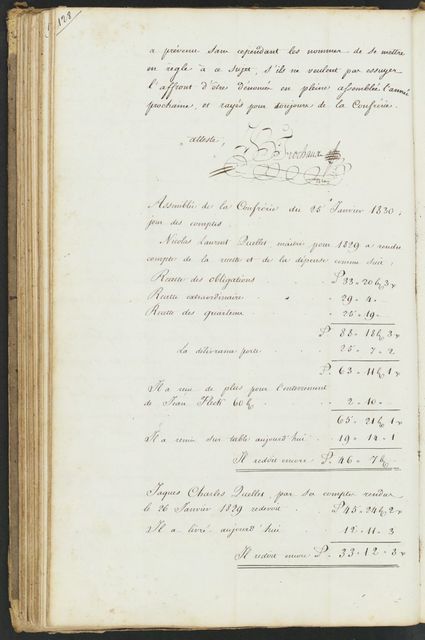 128
a prévenu sans cependant les nommer de se mettre
en règle à ce sujet, s'ils ne veulent pas essuyer
l'affront d'être dénoncés en pleine assemblée l'année
prochaine, et rayés pour toujours de la Confrérie.
atteste,
Frochaux
Assemblée de la Confrérie du 25e Janvier 1830,
jour des comptes
Nicolas Laurent Quellet, maitre pour 1829 a rendu
compte de la recette et de la dépense comme suit,
Recette des obligations . . P 33 " 20 ß 3 x
Recette extraordinaire . . 29 " 4 "
Recette des quarteaux . . 25 " 19 "
P. 88 " 18 ß 3 x
La délivrance porte . . 25 " 7 " 2
P. 63 " 11 ß 1 x
Il a reçu de plus pour l'enterrement
de Jean Fleck 60 ß . . 2 " 10 "
65 " 21 ß 1
Il a remis sur table aujourd'hui . 19 " 14 " 1
Il redoit encore P. 46 " 7 ß
Jaques Charles Quellet, par ses comptes rendus
le 26 Janvier 1829 redevoit . P 45 " 24 ß 2 x
Il a livré aujourd'hui . . 12 " 11 " 3
Il redoit encore P. 33 " 12 " 3 x